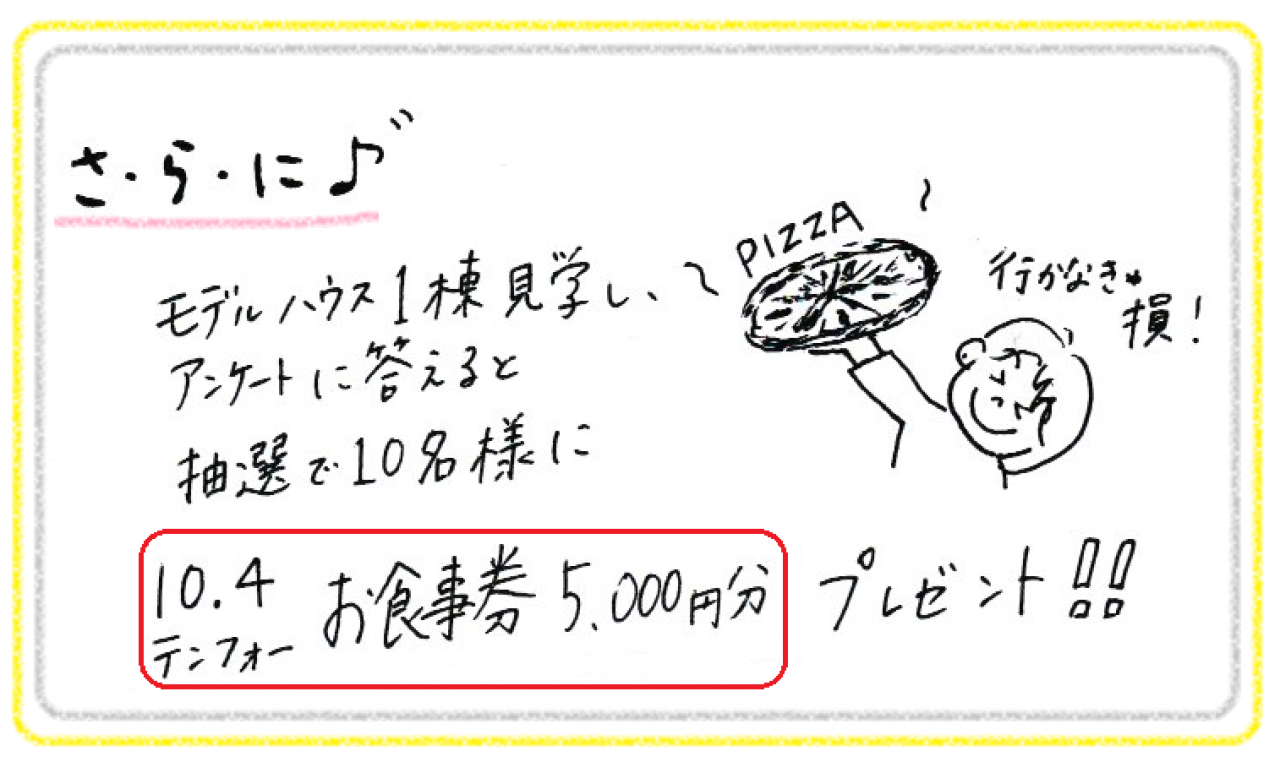 さ・ら・に♪
モデルハウス1棟見学し、
アンケートに答えると
抽選で10名様に
PIZZA
行かなきゃ
損!
10.4 お食事券 5,000円分 プレゼント!!
テンフォー